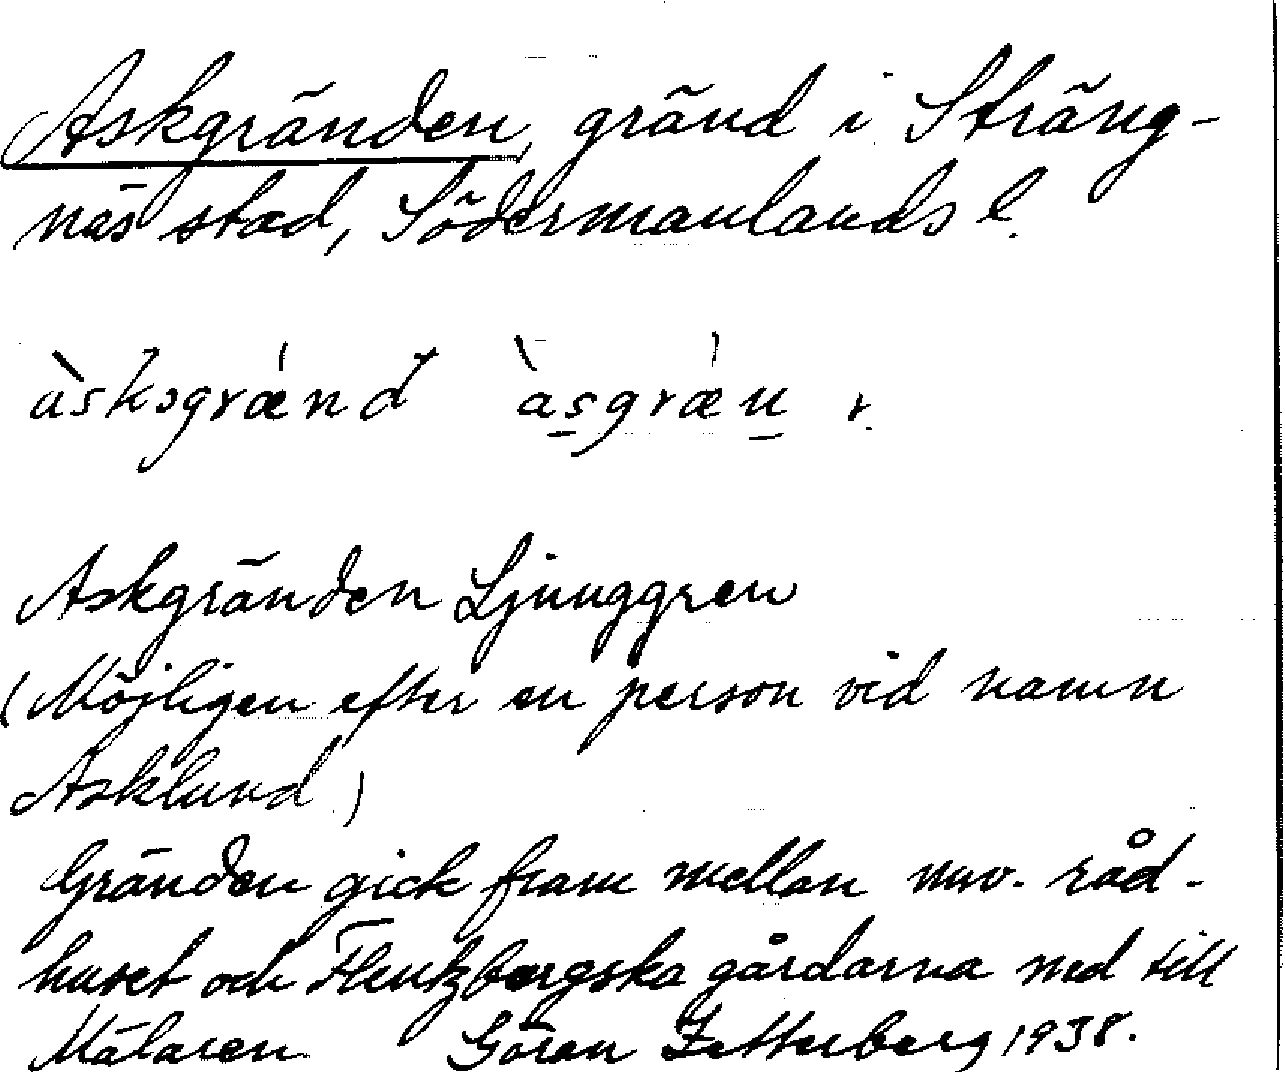 Askgränden, gränd i Sträng-
näs stad, Södermanlands l.
àsksgræ̀nd às̠græ̀n̠ r.
Askgränden Ljunggren
(Möjligen efter en person vid namn
Asklund)
Gränden gick fram mellan nuv. råd-
huset och Flentzbergska gårdarna ned till
Mälaren Göran Zetterberg 1938.